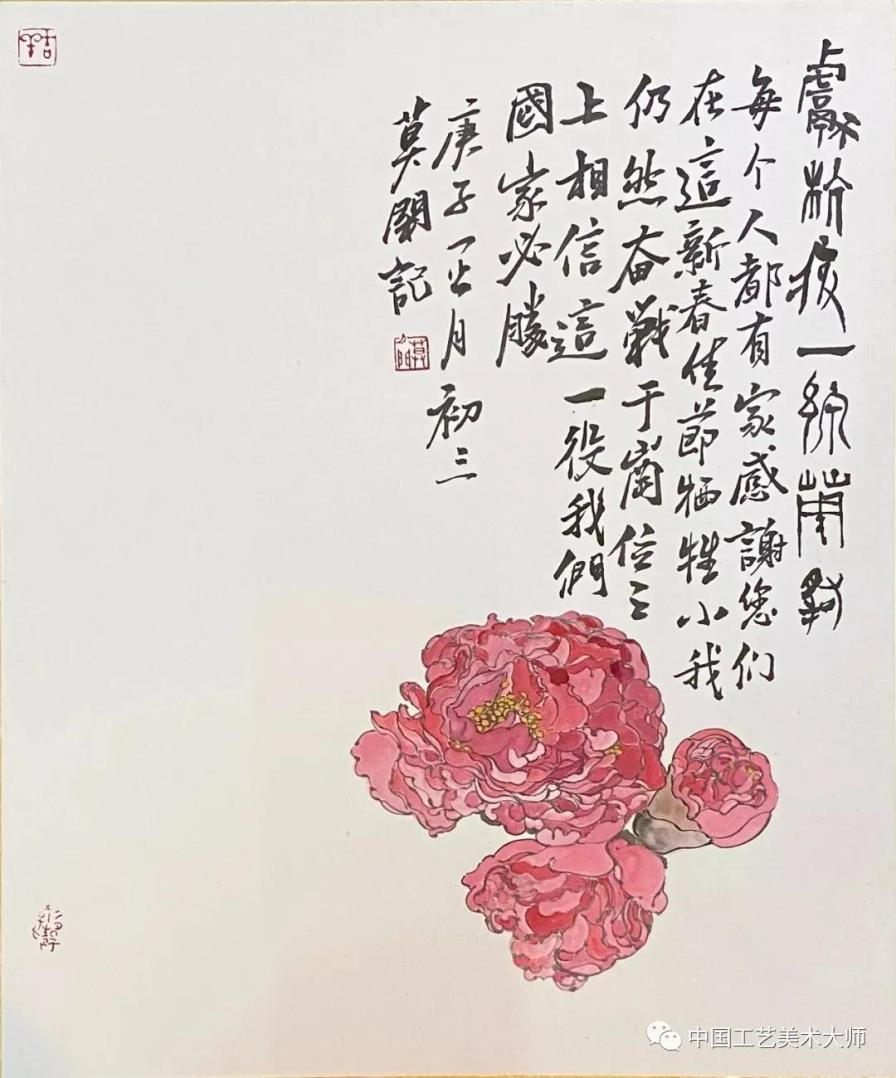 疫一
每个人都有家感謝您们
在這新春佳節牺牲小我
仍然奋戰于崗位之
上相信這一役我們
國家必勝
庚子正月初三
莫記
中国工艺美术大师